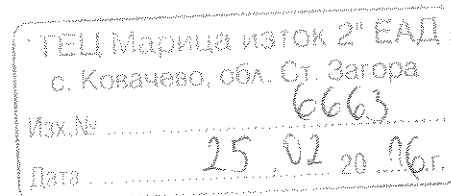 "ТЕЦ Марица изток 2" ЕАД
с. Ковачево, обл. Ст. Загора
Изх.№ ........ 6663
Дата ..... 25.02 20 16 г.